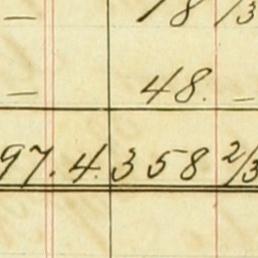 — 18 1/3
— 48. —
97.4.358 2/3